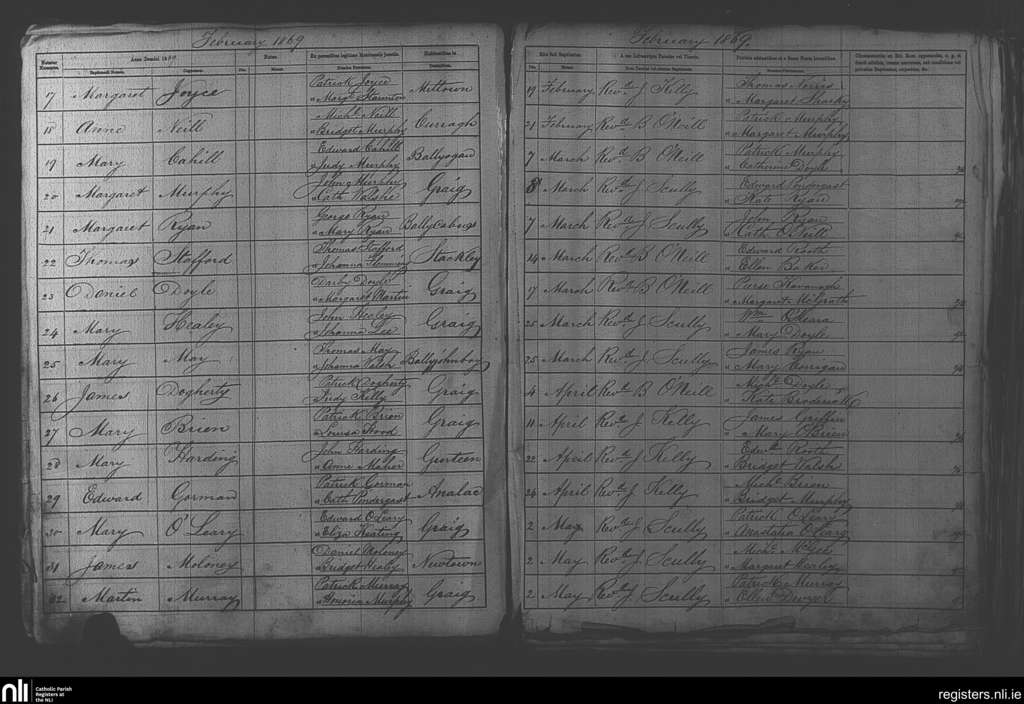 February 1869
February 1869.
Anno Domini 18
Natus
Ex parentibus legitimo Matrimonio junctis
Habitantibus in
Die fuit Baptizatus
A me infrascripto Parocho vel Vicario.
17 Margaret Joyce
Patrick Joyce
" Margt Staunton
Miltown
19 February Revd. J. Kelly
Thomas Norris
" Margaret Sharky
18 Anne Neill
Michl Neill
" Bridget Murphy
Curragh
21 February Revd. B O'Neill
Patrick Murphy
" Margaret Murphy
19 Mary Cahill
Edward Cahill
" Judy Murphy
Ballyogan
7 March Revd. B O'Neill
Patrick Murphy
" Catherine Doyle
20 Margaret Murphy
John Murphy
" Cath Walshe
Graig
8 March Revd. J. Scully
Edward Pendergast
" Kate Ryan
21 Margaret Ryan
George Ryan
" Mary Ryan
7 March Revd. J. Scully
John Ryan
" Cath O'Neill
22 Thomas Stafford
Thomas Stafford
" Johanna Fleming
14 March Revd. B O'Neill
Edward Routh
" Ellen Baker
23 Daniel Doyle
Darby Doyle
" Margaret Martin
Graig
17 March Revd. B O'Neill
Pierse Kavanagh
" Margaret McGrath
24 Mary Healey
John Healey
" Johanna Lee
Graig
25 March Revd. J. Scully
Wm O'Hara
" Mary Doyle
25 Mary May
Thomas May
" Johanna Walsh
Ballyjohnboy
25 March Revd. J. Scully
James Ryan
" Mary Corrigan
26 James Dogherty
Patrick Dogherty
" Judy Kelly
Graig
4 April Revd. B O'Neill
Michl. Doyle
" Kate Broderick
27 Mary Brien
Patrick Brien
" Louisa Hood
Graig
11 April Revd. J. Kelly
James Griffin
" Mary O'Brien
28 Mary Harding
John Harding
" Anne Maher
Gurteen
22 April Revd. J. Kelly
Edwd. Routh
" Bridget Walsh
29 Edward Gorman
Patrick Gorman
" Cath Pendergast
Analac
24 April Revd. J. Kelly
Michl. Brien
" Bridget Murphy
30 Mary O'Leary
Edward O'Leary
" Eliza Keating
Graig
2 May Revd. J. Scully
Patrick O'Leary
" Anastatia O'Leary
31 James Moloney
Daniel Moloney
" Bridget Healy
Newtown
2 May Revd. J. Scully
" Margaret Healey
32 Martin Murray
Patrick Murray
" Honoria Murphy
Graig
2 May Revd. J. Scully
Patrick Murray
" Ellen Dwyer
nli Catholic Parish
Registers at
the NLI
registers.nli.ie